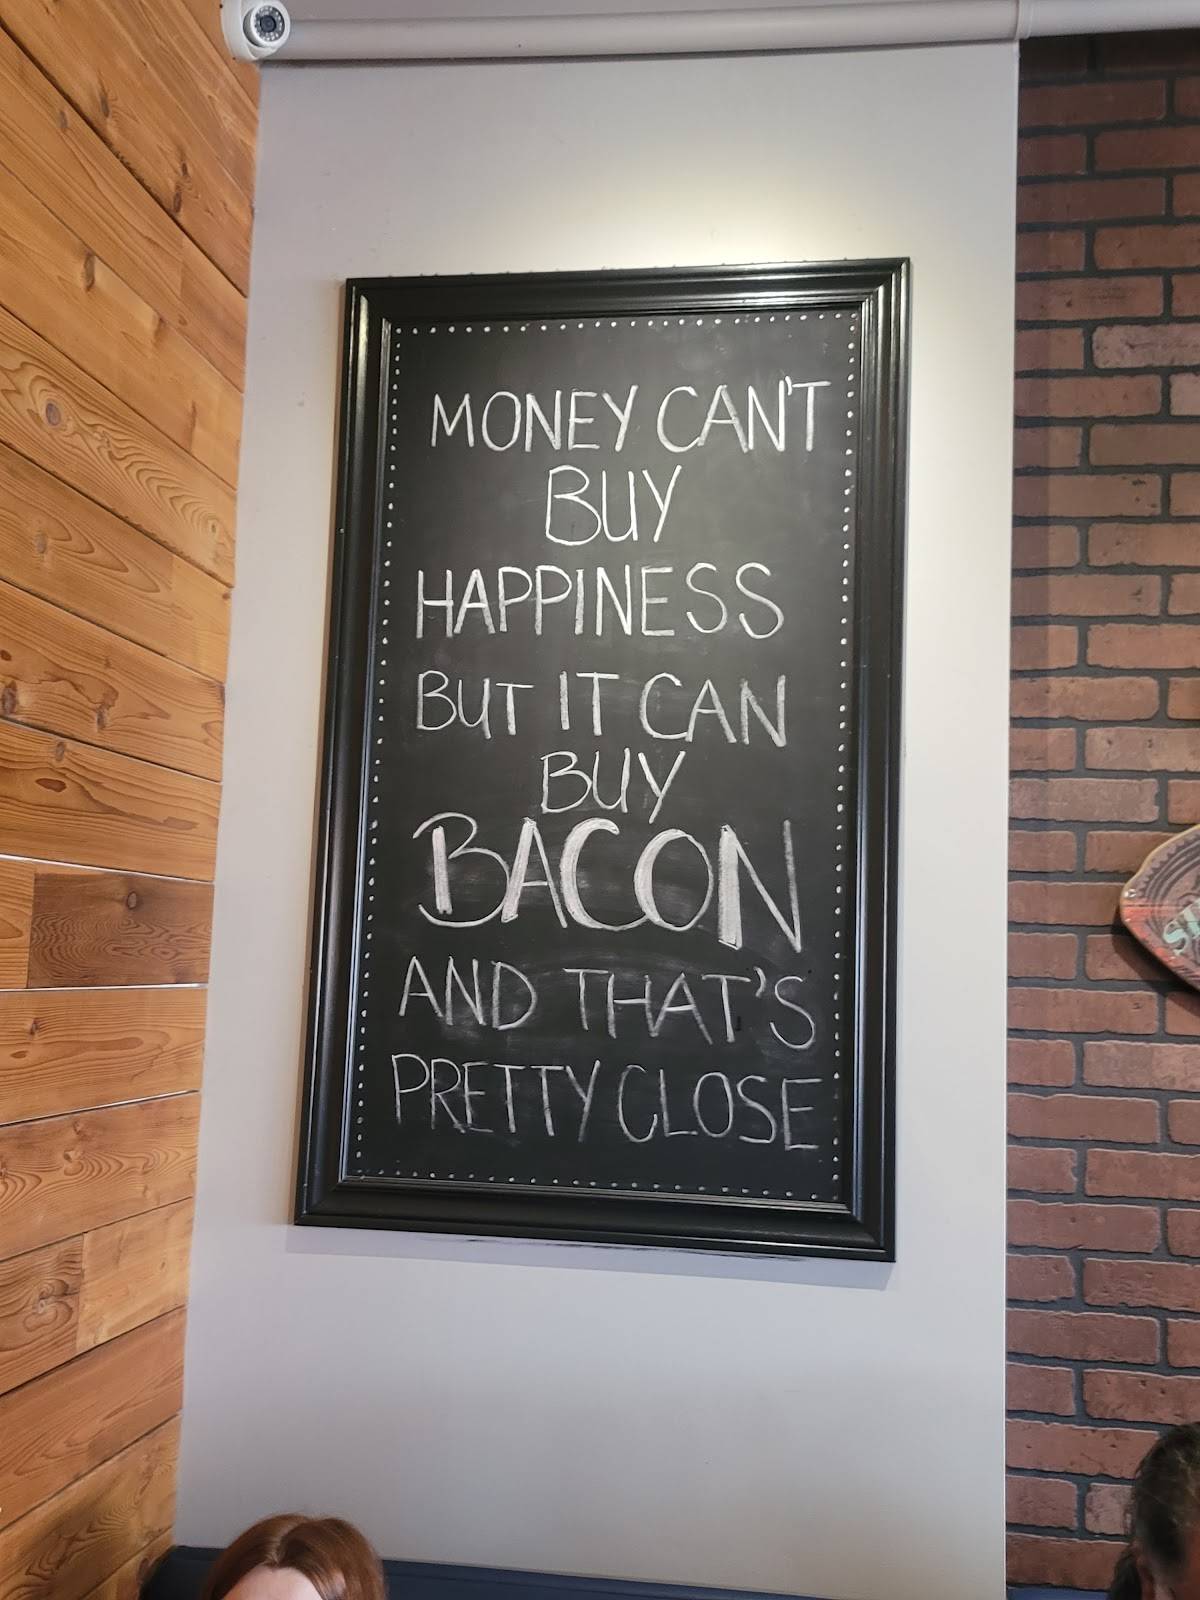 MONEY CAN'T
BUY
HAPPINESS
BUT IT CAN
BUY
BACON
AND THAT'S
PRETTY CLOSE